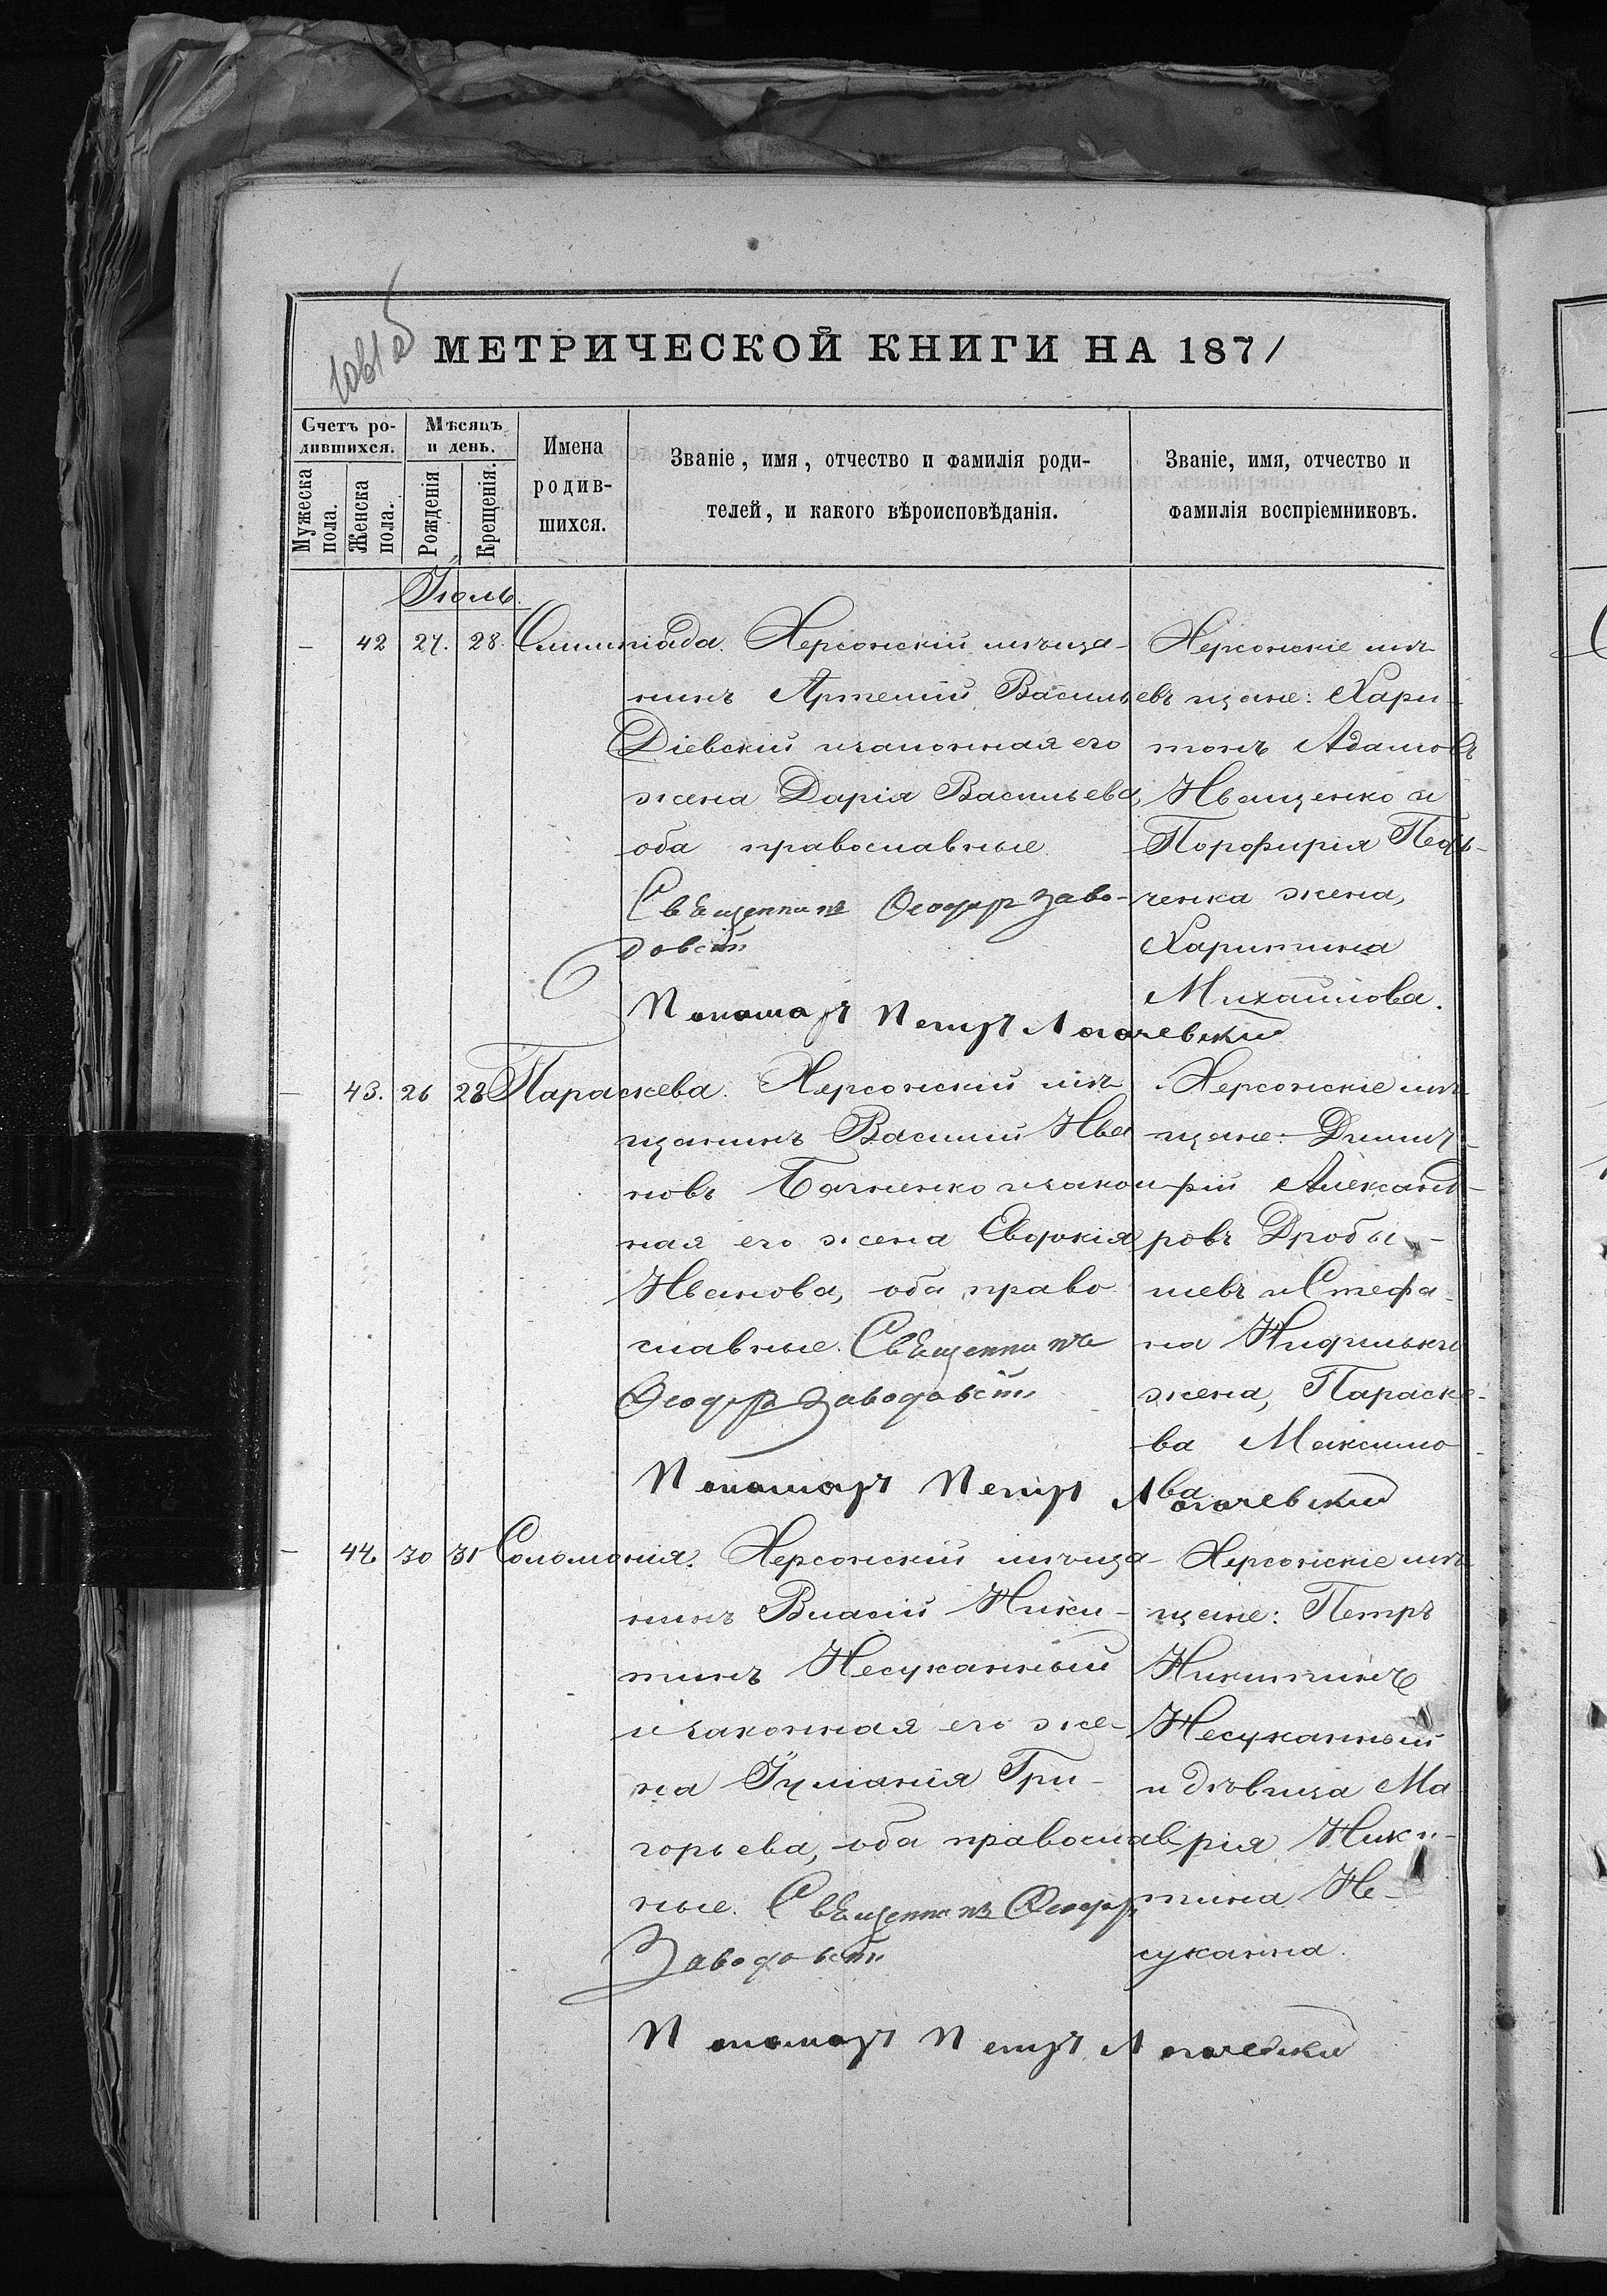 1061 об
МЕТРИЧЕСКОЙ КНИГИ НА 1871
Счетъ ро-
дившихся.
Мужеска
пола.
Женска
пола.
Мѣсяцъ
и день.
Рожденія
Крещенія.
Имена
родив-
шихся.
Званіе, имя, отчество и фамилія роди-
телей, и какого вѣроисповѣданія.
Званіе, имя, отчество и
фамилія воспріемниковъ.
Іюль.
– 42 27. 28. Олимпіада.
Херсонскій мѣща-
нинъ Артемій Васильевъ
Діевскій и законная его
жена Дарія Васильева,
оба православные
Священникъ Ѳеодоръ Заво-
довскій
Пономарь Петръ Логачевскій
Херсонскіе мѣ-
щане: Хари-
тонъ Адамовъ
Иващенко и
Порфирія
ченка жена,
Харитина
Михайлова.
– 43. 26 28 Параскева.
Херсонскій мѣ-
щанинъ Василій Ива
новъ и закон
ная его жена Евдокія
Иванова, оба право
славные. Священникъ
Ѳеодоръ Заводовскій
Пономарь Петръ Логачевскій
Херсонскіе мѣ-
щане: Димит-
рій Александ-
ровъ Дробы-
шевъ и Стефа-
на жена, Параске-
ва Максимо-
ва
– 44. 30 31 Соломонія.
Херсонскій мѣща-
нинъ Власій Ники-
тинъ Несуканный
и законная его же-
на Іуліанія Гри-
горьева, оба православ
ные. Священникъ Ѳеодоръ
Заводовскій
Пономарь Петръ Логачевскій
Херсонскіе мѣ-
щане: Петръ
Никитинъ
Несуканный
и дѣвица Ма
рія Ники-
тина Не-
суканна.